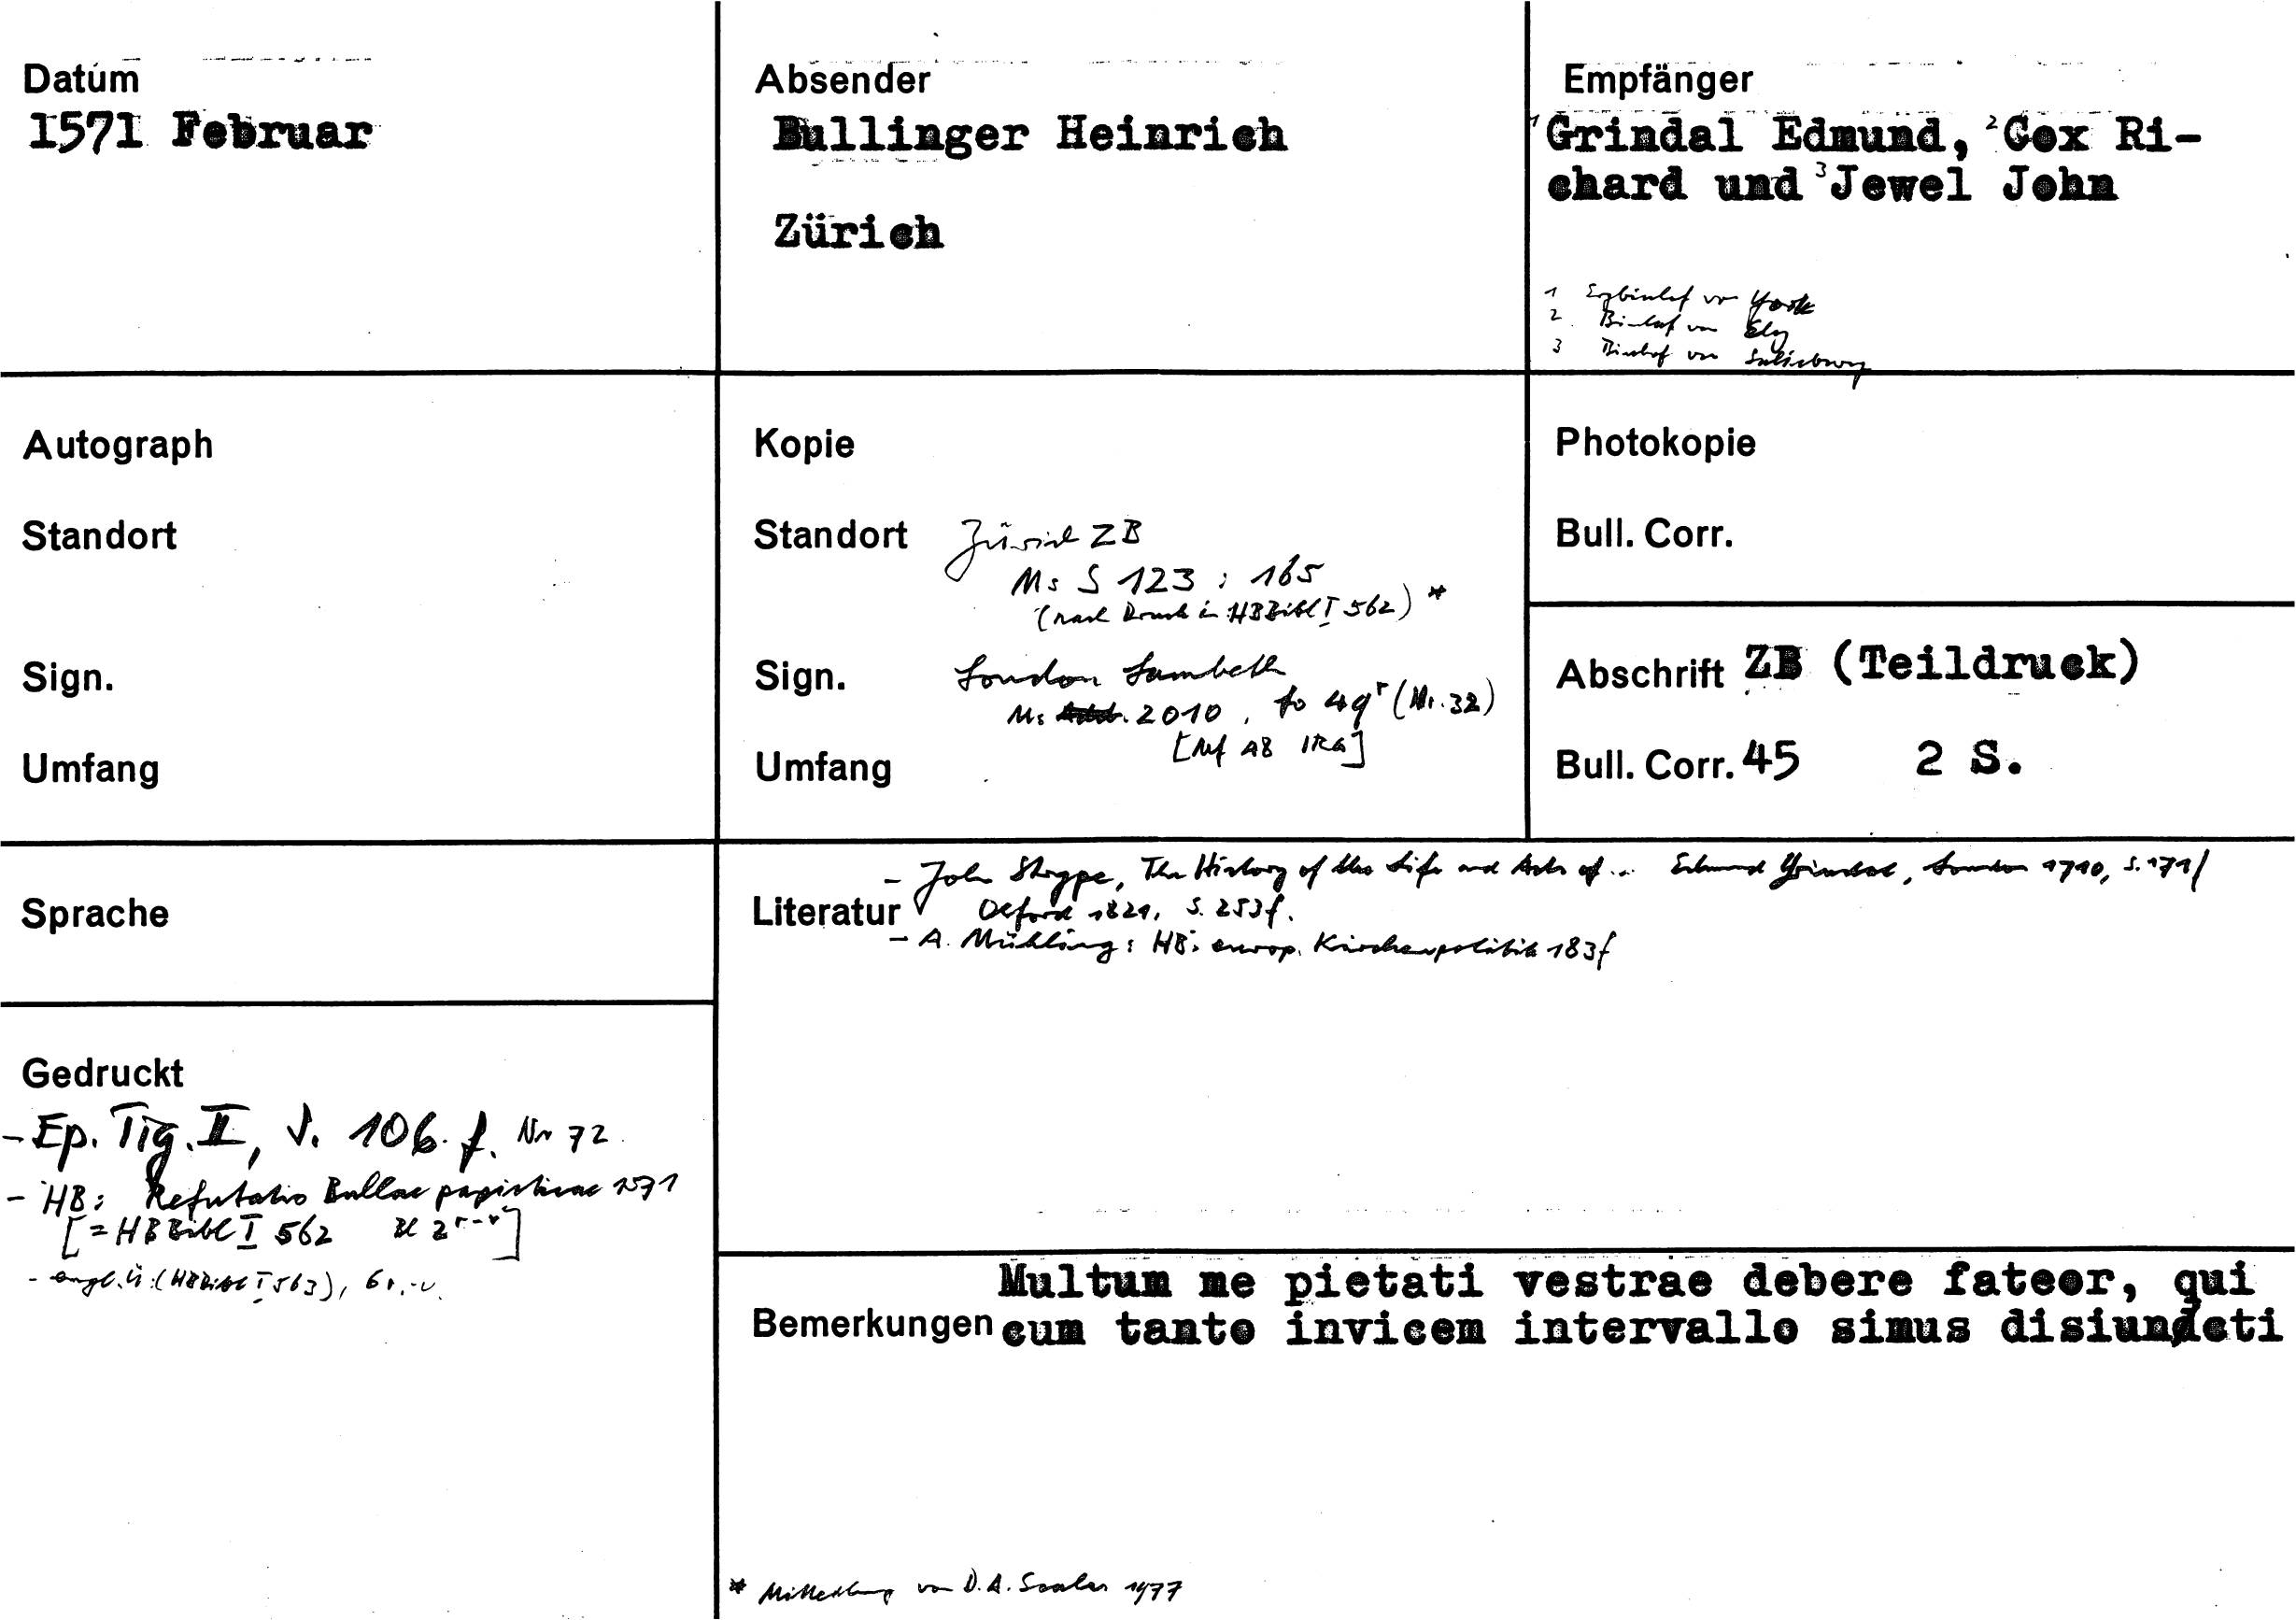 Datum
1571 Februar
Absender
Bullinger Heinrich
Zürich
Empfänger
1 Grindal Edmund, 2 Cox Ri-
chard und 3 Jewel John
1 Erzbischof von York
2 Bischof von Ely
3 Bischof von Salisbury
Autograph
Standort
Sign.
Umfang
Kopie
Standort Zürich ZB
Ms S 123 : 165
(nach Druck in HBBibl I 562) *
Sign. London Lambeth
Ms 2010, fo 49r (Nr. 32)
[Mf AB IRG]
Umfang
Photokopie
Bull. Corr.
Abschrift ZB (Teildruck)
Bull. Corr. 45 2 S.
Sprache
Literatur
- John Strype, The History of the Life and Acts of ... Edmund Grindal, London 1710, S. 171/
Oxford 1821, S. 253f.
- A. Mühling: HB: europ. Kirchenpolitik 183f
Gedruckt
- Ep. Tig. II, S. 106. f. Nr 72
- HB: Refutatio Bullae papisticae 1571
[= HBBibl I 562 Bl 2r-v]
- engl. Ü: (HBBibl I 563), 6r.-v.
Bemerkungen
Multum me pietati vestrae debere fateor, qui
cum tanto invicem intervallo simus disiuncti
* Mitteilung von D. A. Scales 1977